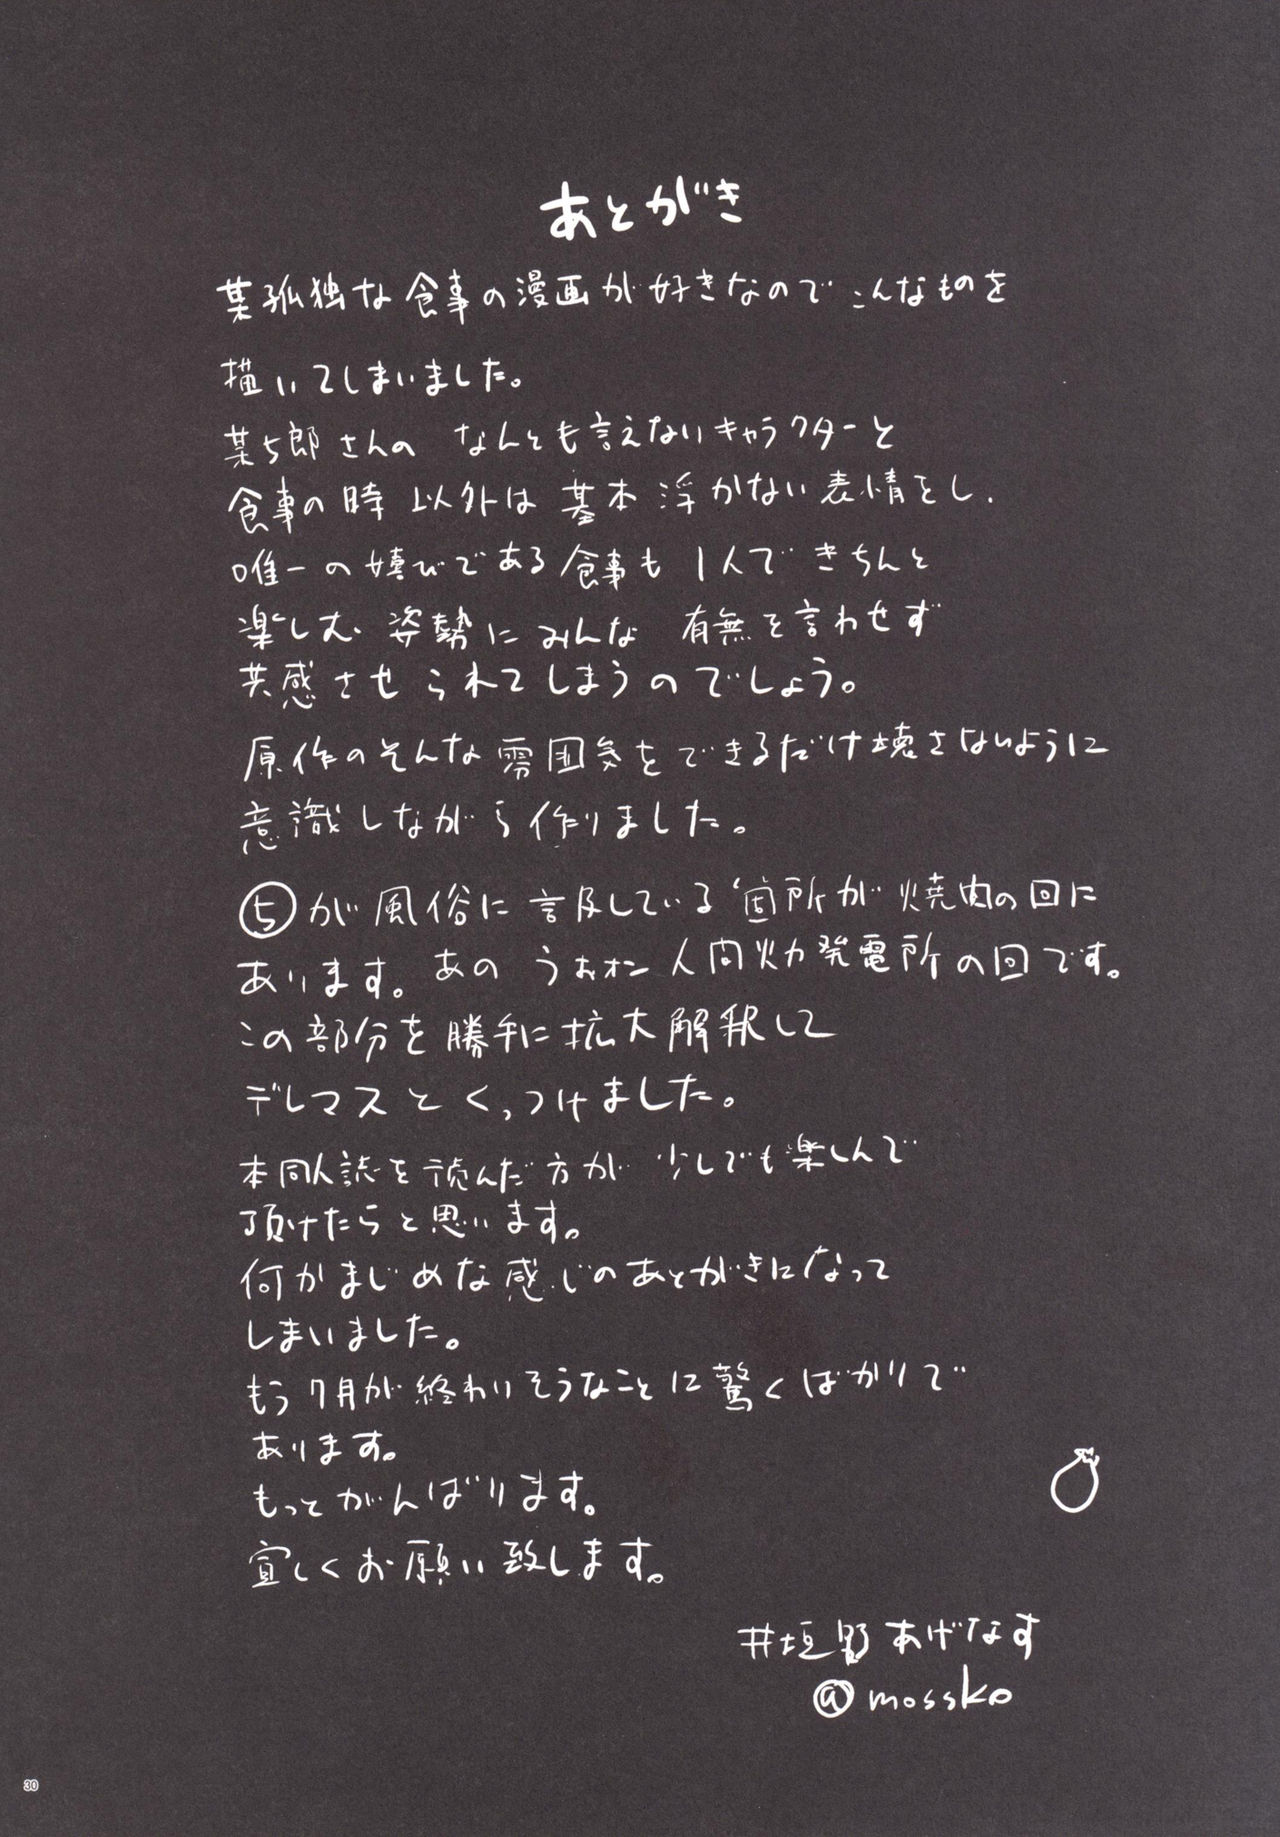 あとがき
某孤独な食事の漫画が好きなのでこんなものを
描いてしまいました。
某5郎さんの なんとも言えないキャラクターと
食事の時以外は基本浮かない表情をし、
唯一の嬉びである食事も1人できちんと
楽しむ姿勢にみんな 有無を言わせず
共感させられてしまうのでしょう。
原作のそんな雰囲気をできるだけ壊さないように
意識しながら作りました。
⑤が風俗に言及している箇所が焼肉の回に
あります。あの うぉオン人間火力発電所の回です。
この部分を勝手に拡大解釈して
デレマスとくっつけました。
本同人誌を読んだ方が 少しでも楽しんで
頂けたらと思います。
何かまじめな感じのあとがきになって
しまいました。
もう7月が終わりそうなことに驚くばかりで
あります。
もっとがんばります。
宜しくお願い致します。
井垣野あげなす
@mossko
30